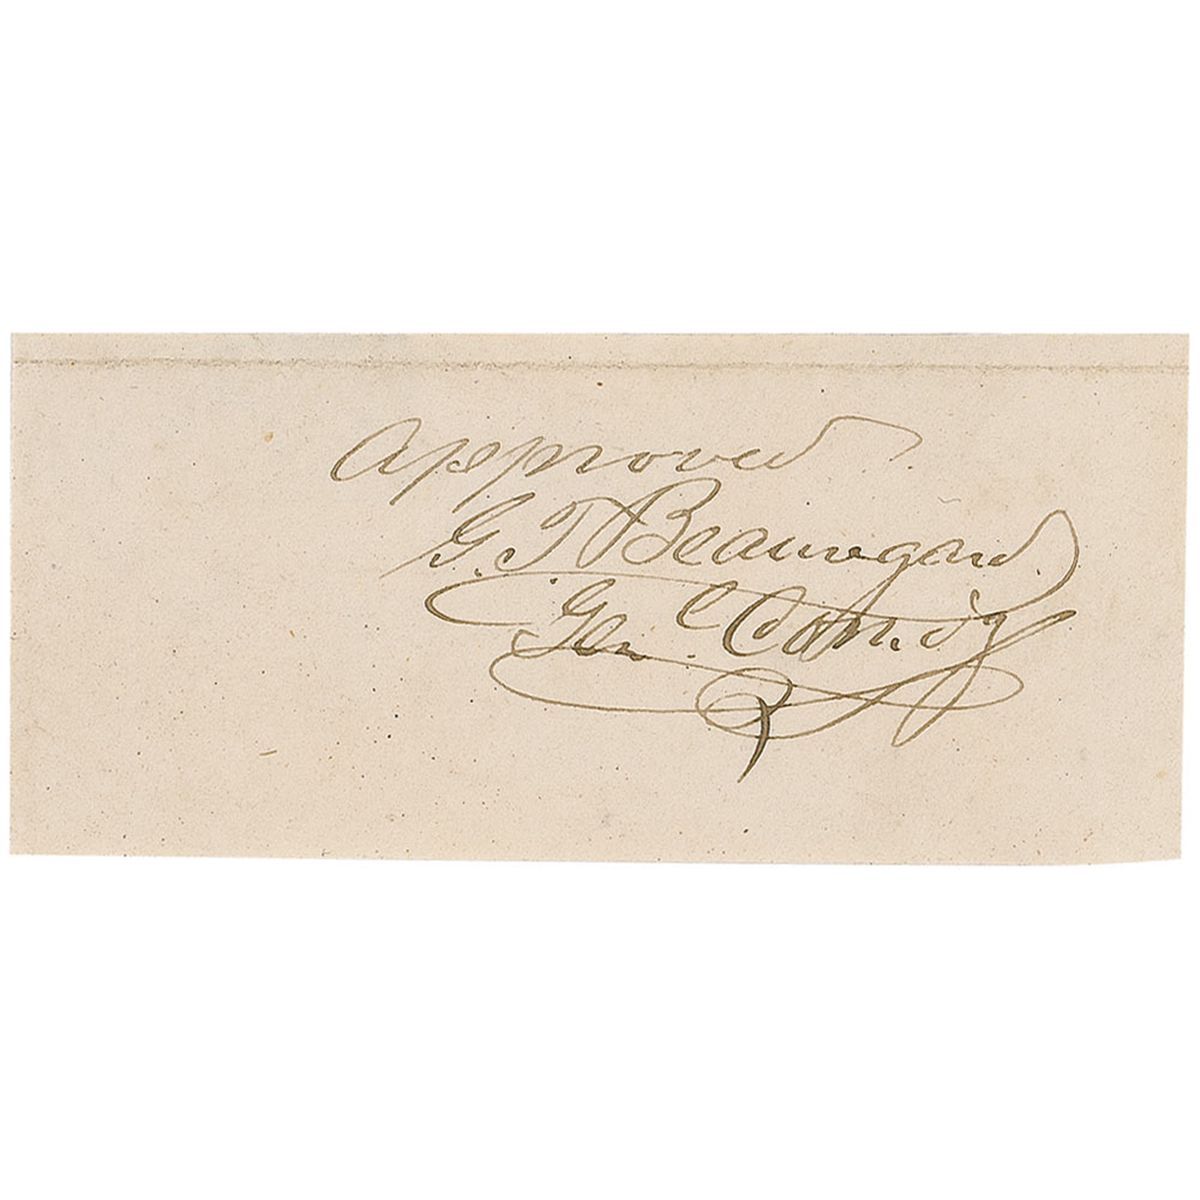 Approved.
G. T. Beauregard.
Genl. Comdg